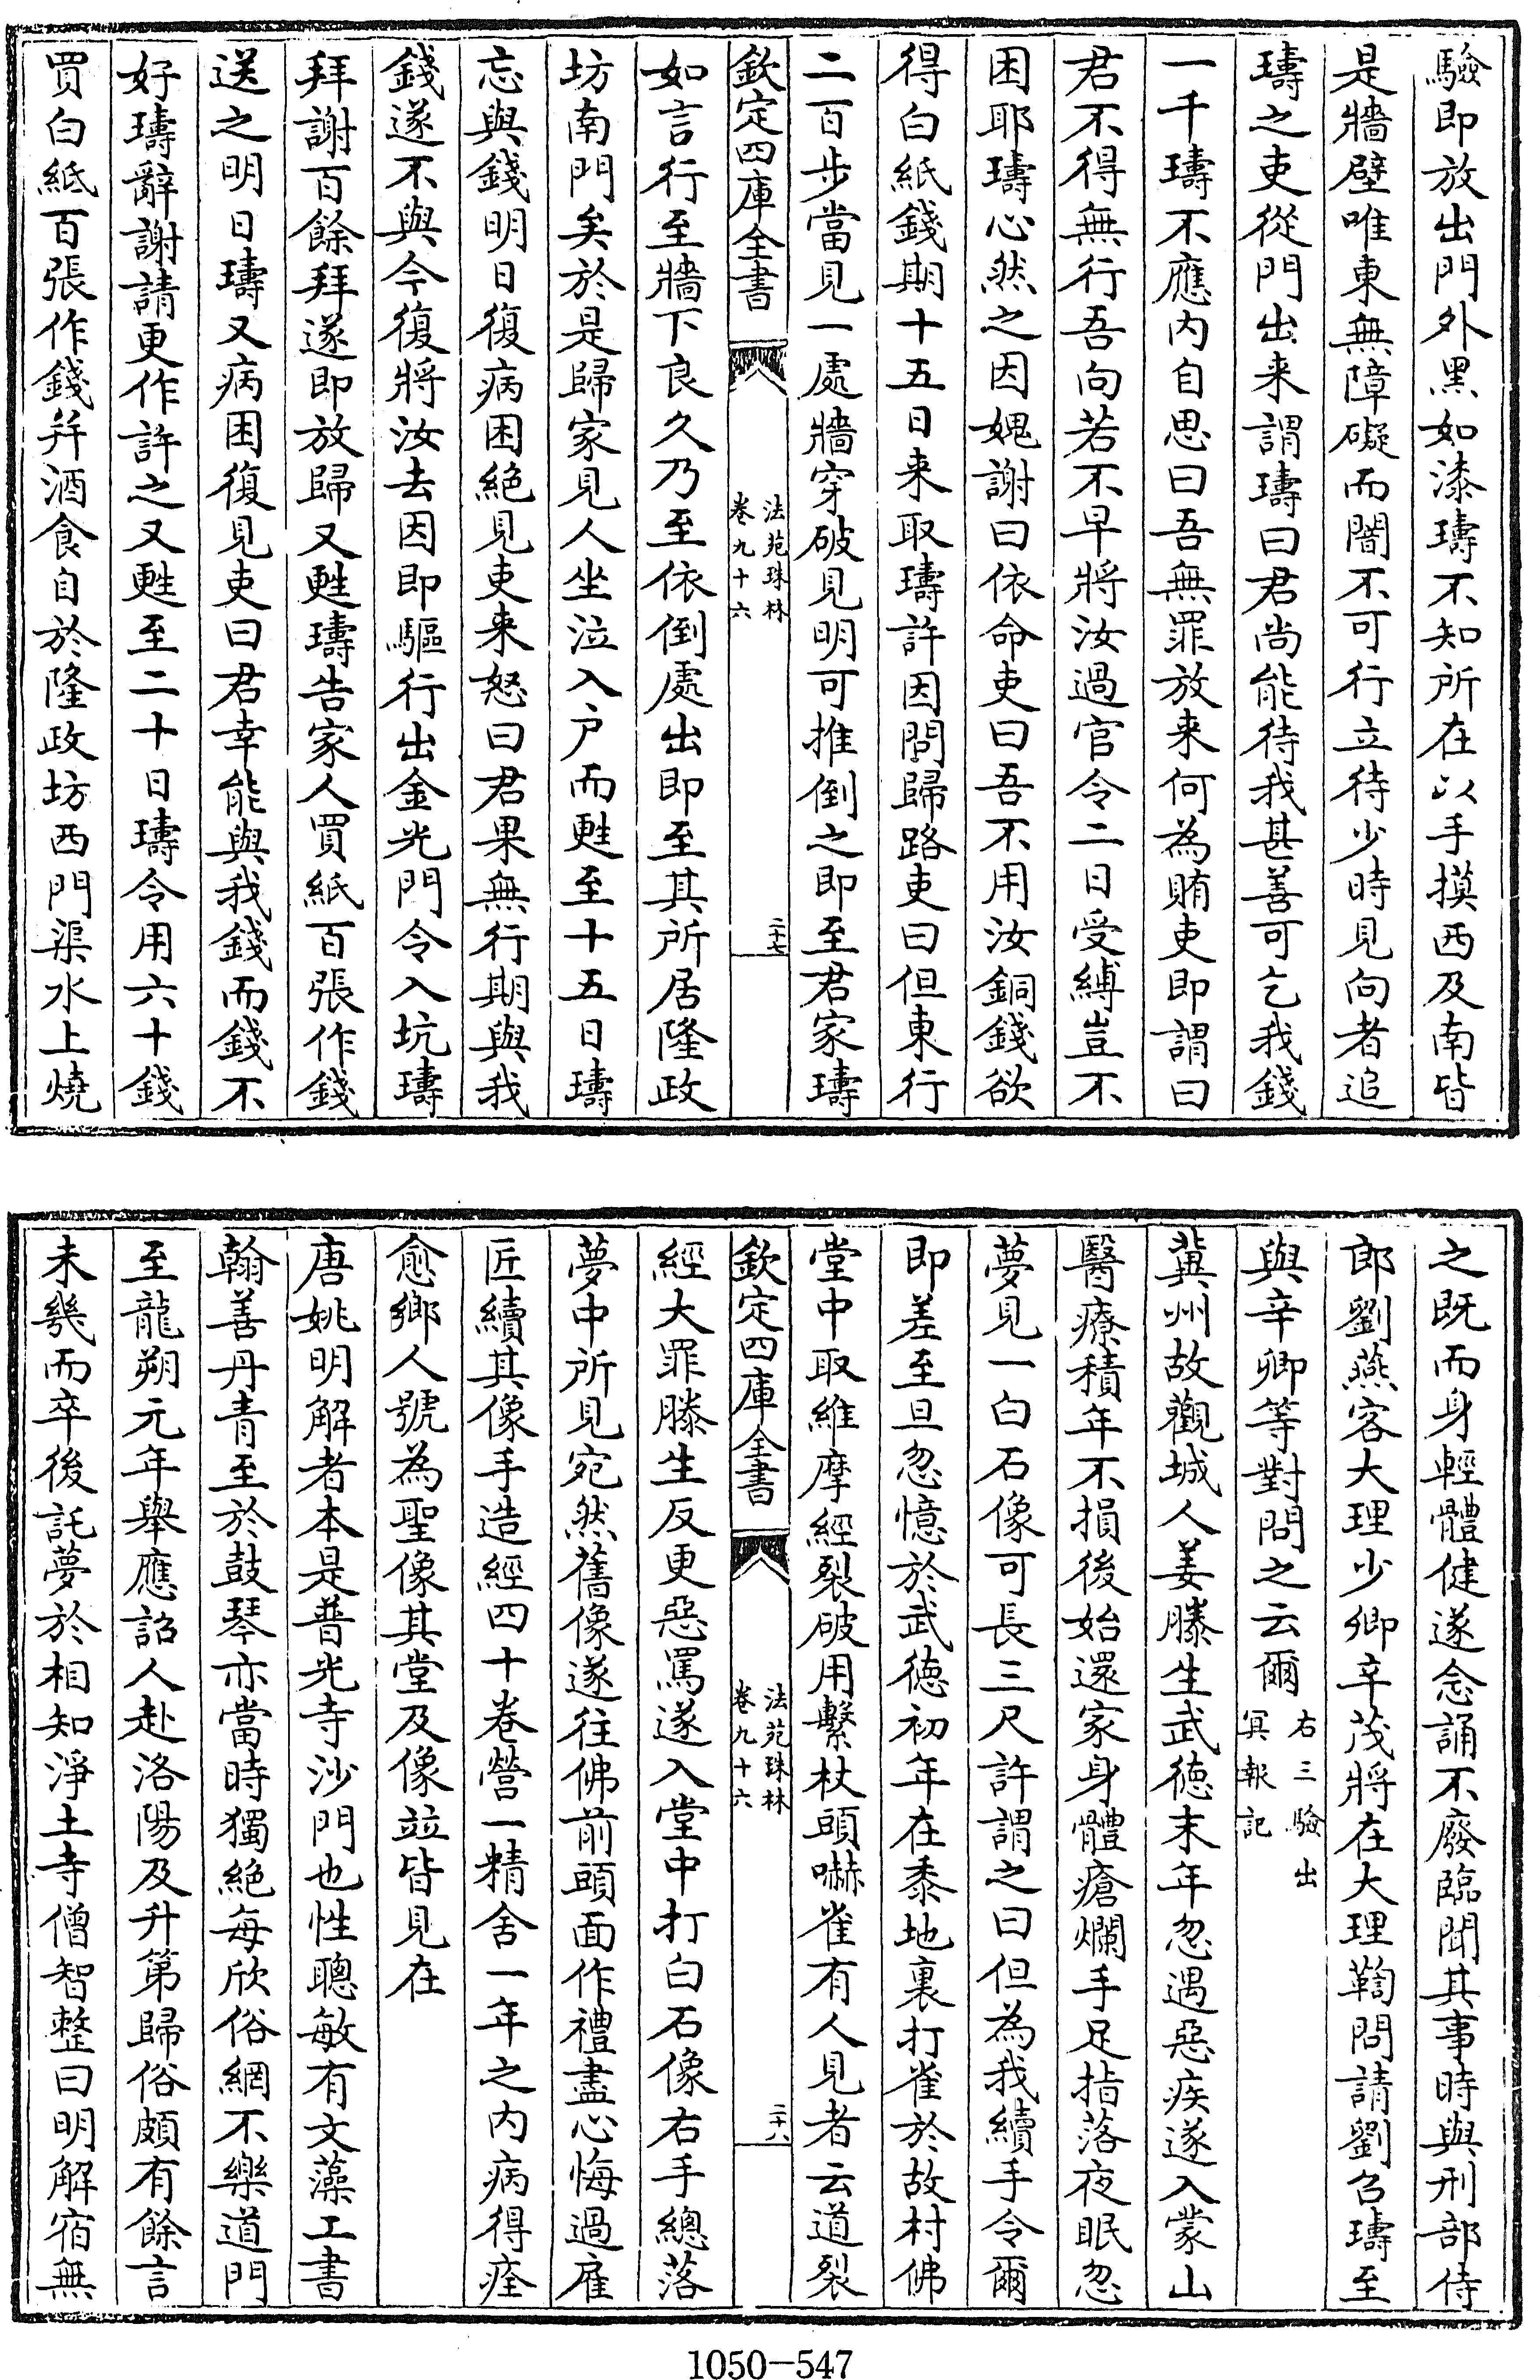 驗即放出門外黑如漆璹不知所在以手摸西及南皆
是牆壁唯東無障礙而闇不可行立待少時見向者追
璹之吏從門出来謂璹曰君尚能待我甚善可乞我錢
一千璹不應内自思曰吾無罪放来何為賄吏即謂曰
君不得無行吾向若不早將汝過官令二日受縛豈不
困耶璹心然之因媿謝曰依命吏曰吾不用汝銅錢欲
得白紙錢期十五日来取璹許因問歸路吏曰但東行
二百步當見一處牆穿破見明可推倒之即至君家璹
欽定四庫全書
法苑珠林
卷九十六
二十七
如言行至牆下良久乃至依倒處出即至其所居隆政
坊南門矣於是歸家見人坐泣入户而甦至十五日璹
忘與錢明日復病困絶見吏来怒曰君果無行期與我
錢遂不與今復將汝去因即驅行出金光門令入坑璹
拜謝百餘拜遂即放歸又甦璹告家人買紙百張作錢
送之明日璹又病困復見吏曰君幸能與我錢而錢不
好璹辭謝請更作許之又甦至二十日璹令用六十錢
買白紙百張作錢并酒食自於隆政坊西門渠水上燒
之既而身輕體健遂念誦不廢臨聞其事時與刑部侍
郎劉燕客大理少卿辛茂將在大理鞫問請劉召璹至
與辛卿等對問之云爾
右三驗出
冥報記
冀州故觀城人姜滕生武徳末年忽遇惡疾遂入蒙山
醫療積年不損後始還家身體瘡爛手足指落夜眠忽
夢見一白石像可長三尺許謂之曰但為我續手令爾
即差至旦忽憶於武徳初年在黍地裏打雀於故村佛
堂中取維摩經裂破用繫杖頭嚇雀有人見者云道裂
欽定四庫全書
法苑珠林
卷九十六
二十八
經大罪滕生反更惡罵遂入堂中打白石像右手總落
夢中所見宛然舊像遂往佛前頭面作禮盡心悔過雇
匠續其像手造經四十卷營一精舍一年之内病得痊
愈鄉人號為聖像其堂及像竝皆見在
唐姚明解者本是普光寺沙門也性聰敏有文藻工書
翰善丹青至於鼓琴亦當時獨絶每欣俗網不樂道門
至龍朔元年舉應詔人赴洛陽及升第歸俗頗有餘言
未幾而卒後託夢於相知淨土寺僧智整曰明解宿無
1050-547